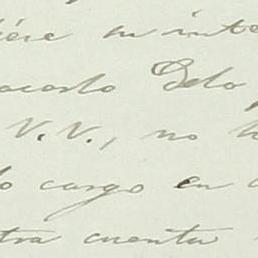 iére en inte
acosto Delo
V. V., no h
lo cargo en
tra cuenta